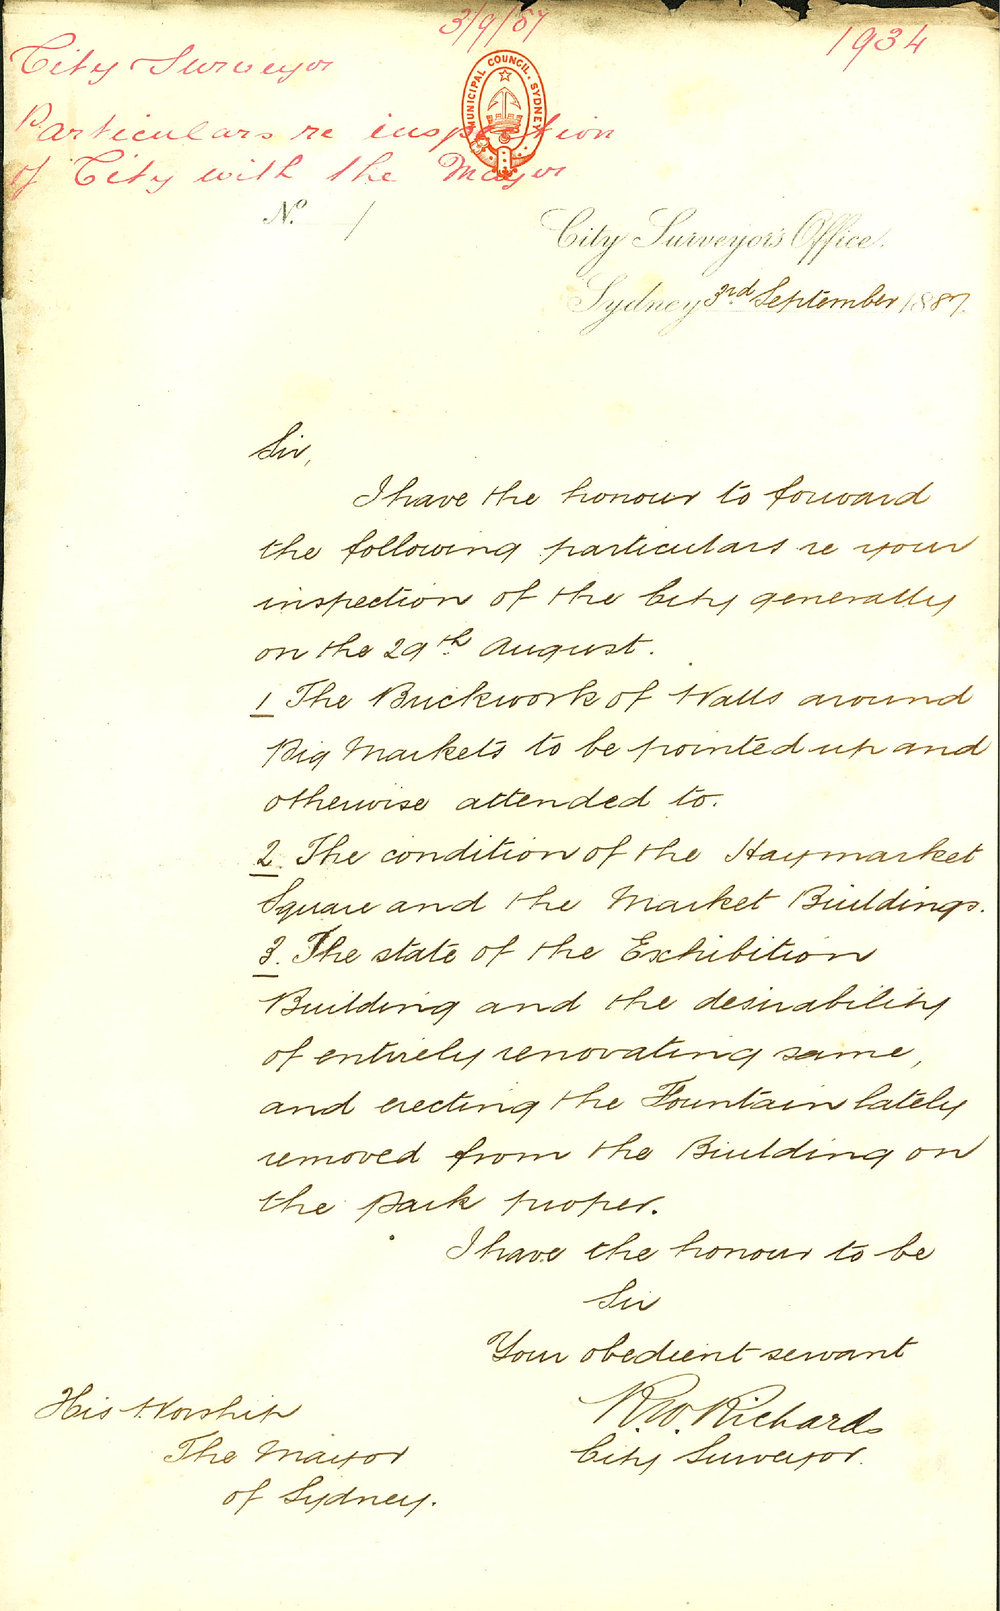 3/9/87
1934
City Surveyor
Particulars re inspection
of City with the Mayor
MUNICIPAL COUNCIL, SYDNEY
No. /
City Surveyor's Office.
Sydney 3rd September 1887.
Sir,
I have the honour to forward
the following particulars re your
inspection of the City generally
on the 29th August.
1 The Brickwork of Walls around
Pig Markets to be pointed up and
otherwise attended to.
2. The condition of the Haymarket
Square and the Market Buildings.
3. The state of the Exhibition
Building and the desirability
of entirely renovating same,
and erecting the Fountain lately
removed from the Building on
the Park proper.
I have the honour to be
Sir
Your obedient servant
R.W. Richards
City Surveyor.
His Worship
The Mayor
of Sydney.